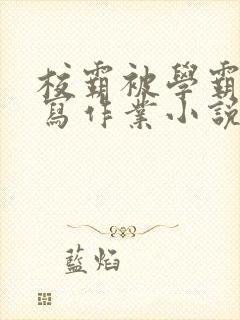 校霸被學霸
寫作業小說
藍焰